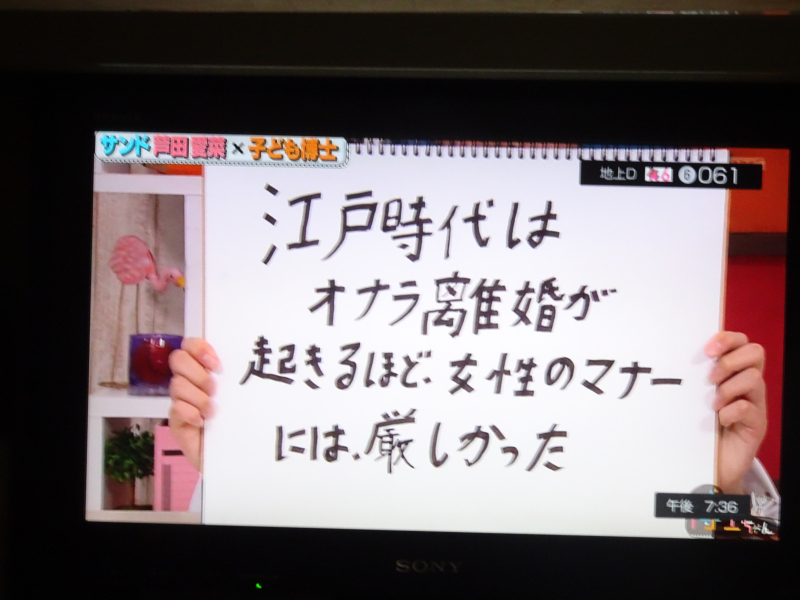 サンド 芦田愛菜×子ども博士
地上D 061
江戸時代は
オナラ離婚が
起きるほど、女性のマナー
には、厳しかった
午後 7:36
SONY